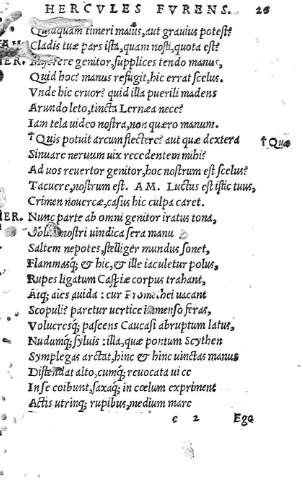 HERCVLES FVRENS. 26
Quidquam timeri maius, aut grauius potest?
Cladis tuæ pars ista, quam nosti, quota est?
HER. Miserere genitor, supplices tendo manus,
Quid hoc? manus refugit, hic errat scelus.
Vnde hic cruor? quid illa puerili madens
Arundo leto, tincta Lernæa nece?
Iam tela uideo nostra, non quæro manum.
†Quis potuit arcum flectere? aut quæ dextera †Quæ
Sinuare neruum uix recedentem mihi?
Ad uos reuertor genitor, hoc nostrum est scelus?
Tacuere, nostrum est. AM. Luctus est istic tuus,
Crimen nouercæ, casus hic culpa caret.
HER. Nunc parte ab omni genitor iratus tona,
nostri uindica sera manu
Saltem nepotes, stelliger mundus sonet,
Flammasq; & hic, & ille iaculetur polus,
Rupes ligatum Caspiæ corpus trahant,
Atq; ales auida: cur Promethei uacant
Scopuli? paretur uertice immenso feras,
Volucresq; pascens Caucasi abruptum latus,
Nudumq; syluis: illa, quæ pontum Scythen
Symplegas arctat, hinc & hinc uinctas manus
Distendat alto, cumq; reuocata uice
In se coibunt, saxaq; in cœlum expriment
Actis utrinq; rupibus, medium mare
c 2 Ego